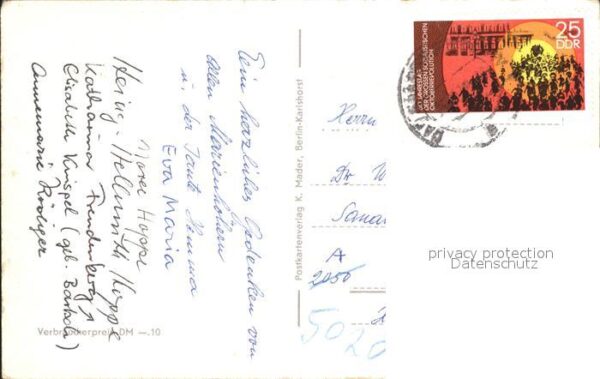 Ein herzliches Gedenken von
allen Marienhöhern
in der Tante Hemma
Eva Maria
Hoppe
Heinz-Hellmuth Hoppe
Katharina Freudenberg
Elisabeth Knispel (geb. Bartsch)
Annemarie Rüdiger
Verbraucherpreis DM —.10
Postkartenverlag K. Mader, Berlin-Karlshorst
25
DDR
60. JAHRESTAG
DER GROSSEN SOZIALISTISCHEN
OKTOBERREVOLUTION
Herrn
Dr. W
Sana
A
2056
5020
privacy protection
Datenschutz